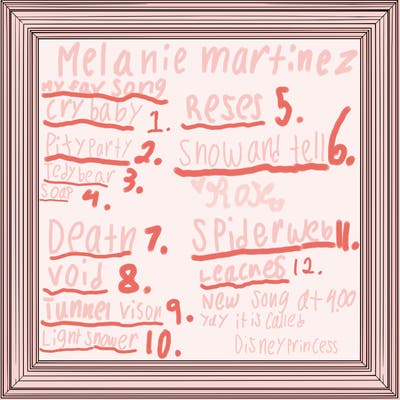 Melanie martinez
my fav song
cry baby 1.
Pity party 2.
Tedy bear 3.
Soap 4.
Reses 5.
Snow and tell 6.
Rose
Death 7.
Void 8.
Tunnel vison 9.
Light snower 10.
Spider web 11.
Leaches 12.
New song at 4.00
yay it is called
Disney princess